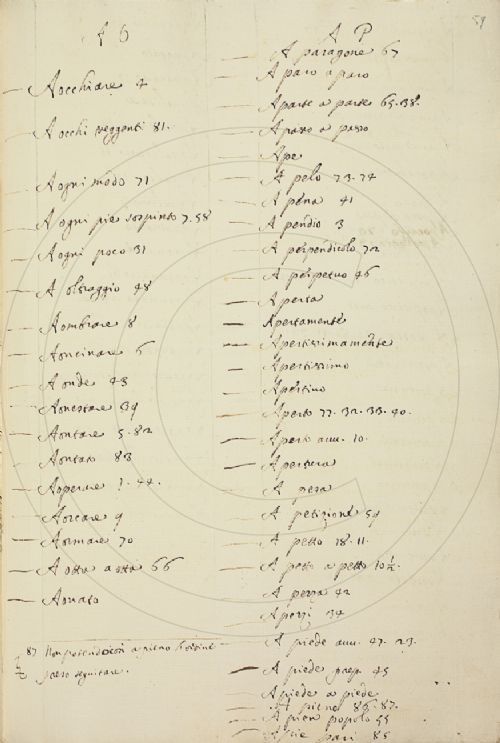 59
A O
Aocchiare 4
A occhi veggenti 81.
A ogni modo 71
A ogni pie sospinto 7.58
A ogni poco 31
A oltraggio 48
Aombrare 8
Aoncinare 6
A onde 43
Aonestare 39
Aontare 5.82
Aontato 83
Aoperare 1.44.
Aorcare 9
Aormare 70
A otta a otta 66
Aovato
87 Non potendosi
paese seguitare.
A P
A paragone 67
A paro a paro
A parte a parte 65.38.
A passo a passo
Ape
A pelo 73.74
A pena 41
A pendio 3
A perpendicolo 72
A perpetuo 46
Aperta
Apertamente
Apertissimamente
Apertissimo
Apertivo
Aperto 77.32.33.40.
Aperto avv. 10.
Apertura
A pesa
A petizione 54
A petto 18.11.
A petto a petto 10½.
A pezza 42
A pezzi 34
A piede avv. 47.23.
A piede prep. 45
A piede a piede
A piene 86.87.
A pien popolo 55
A pie pari 85